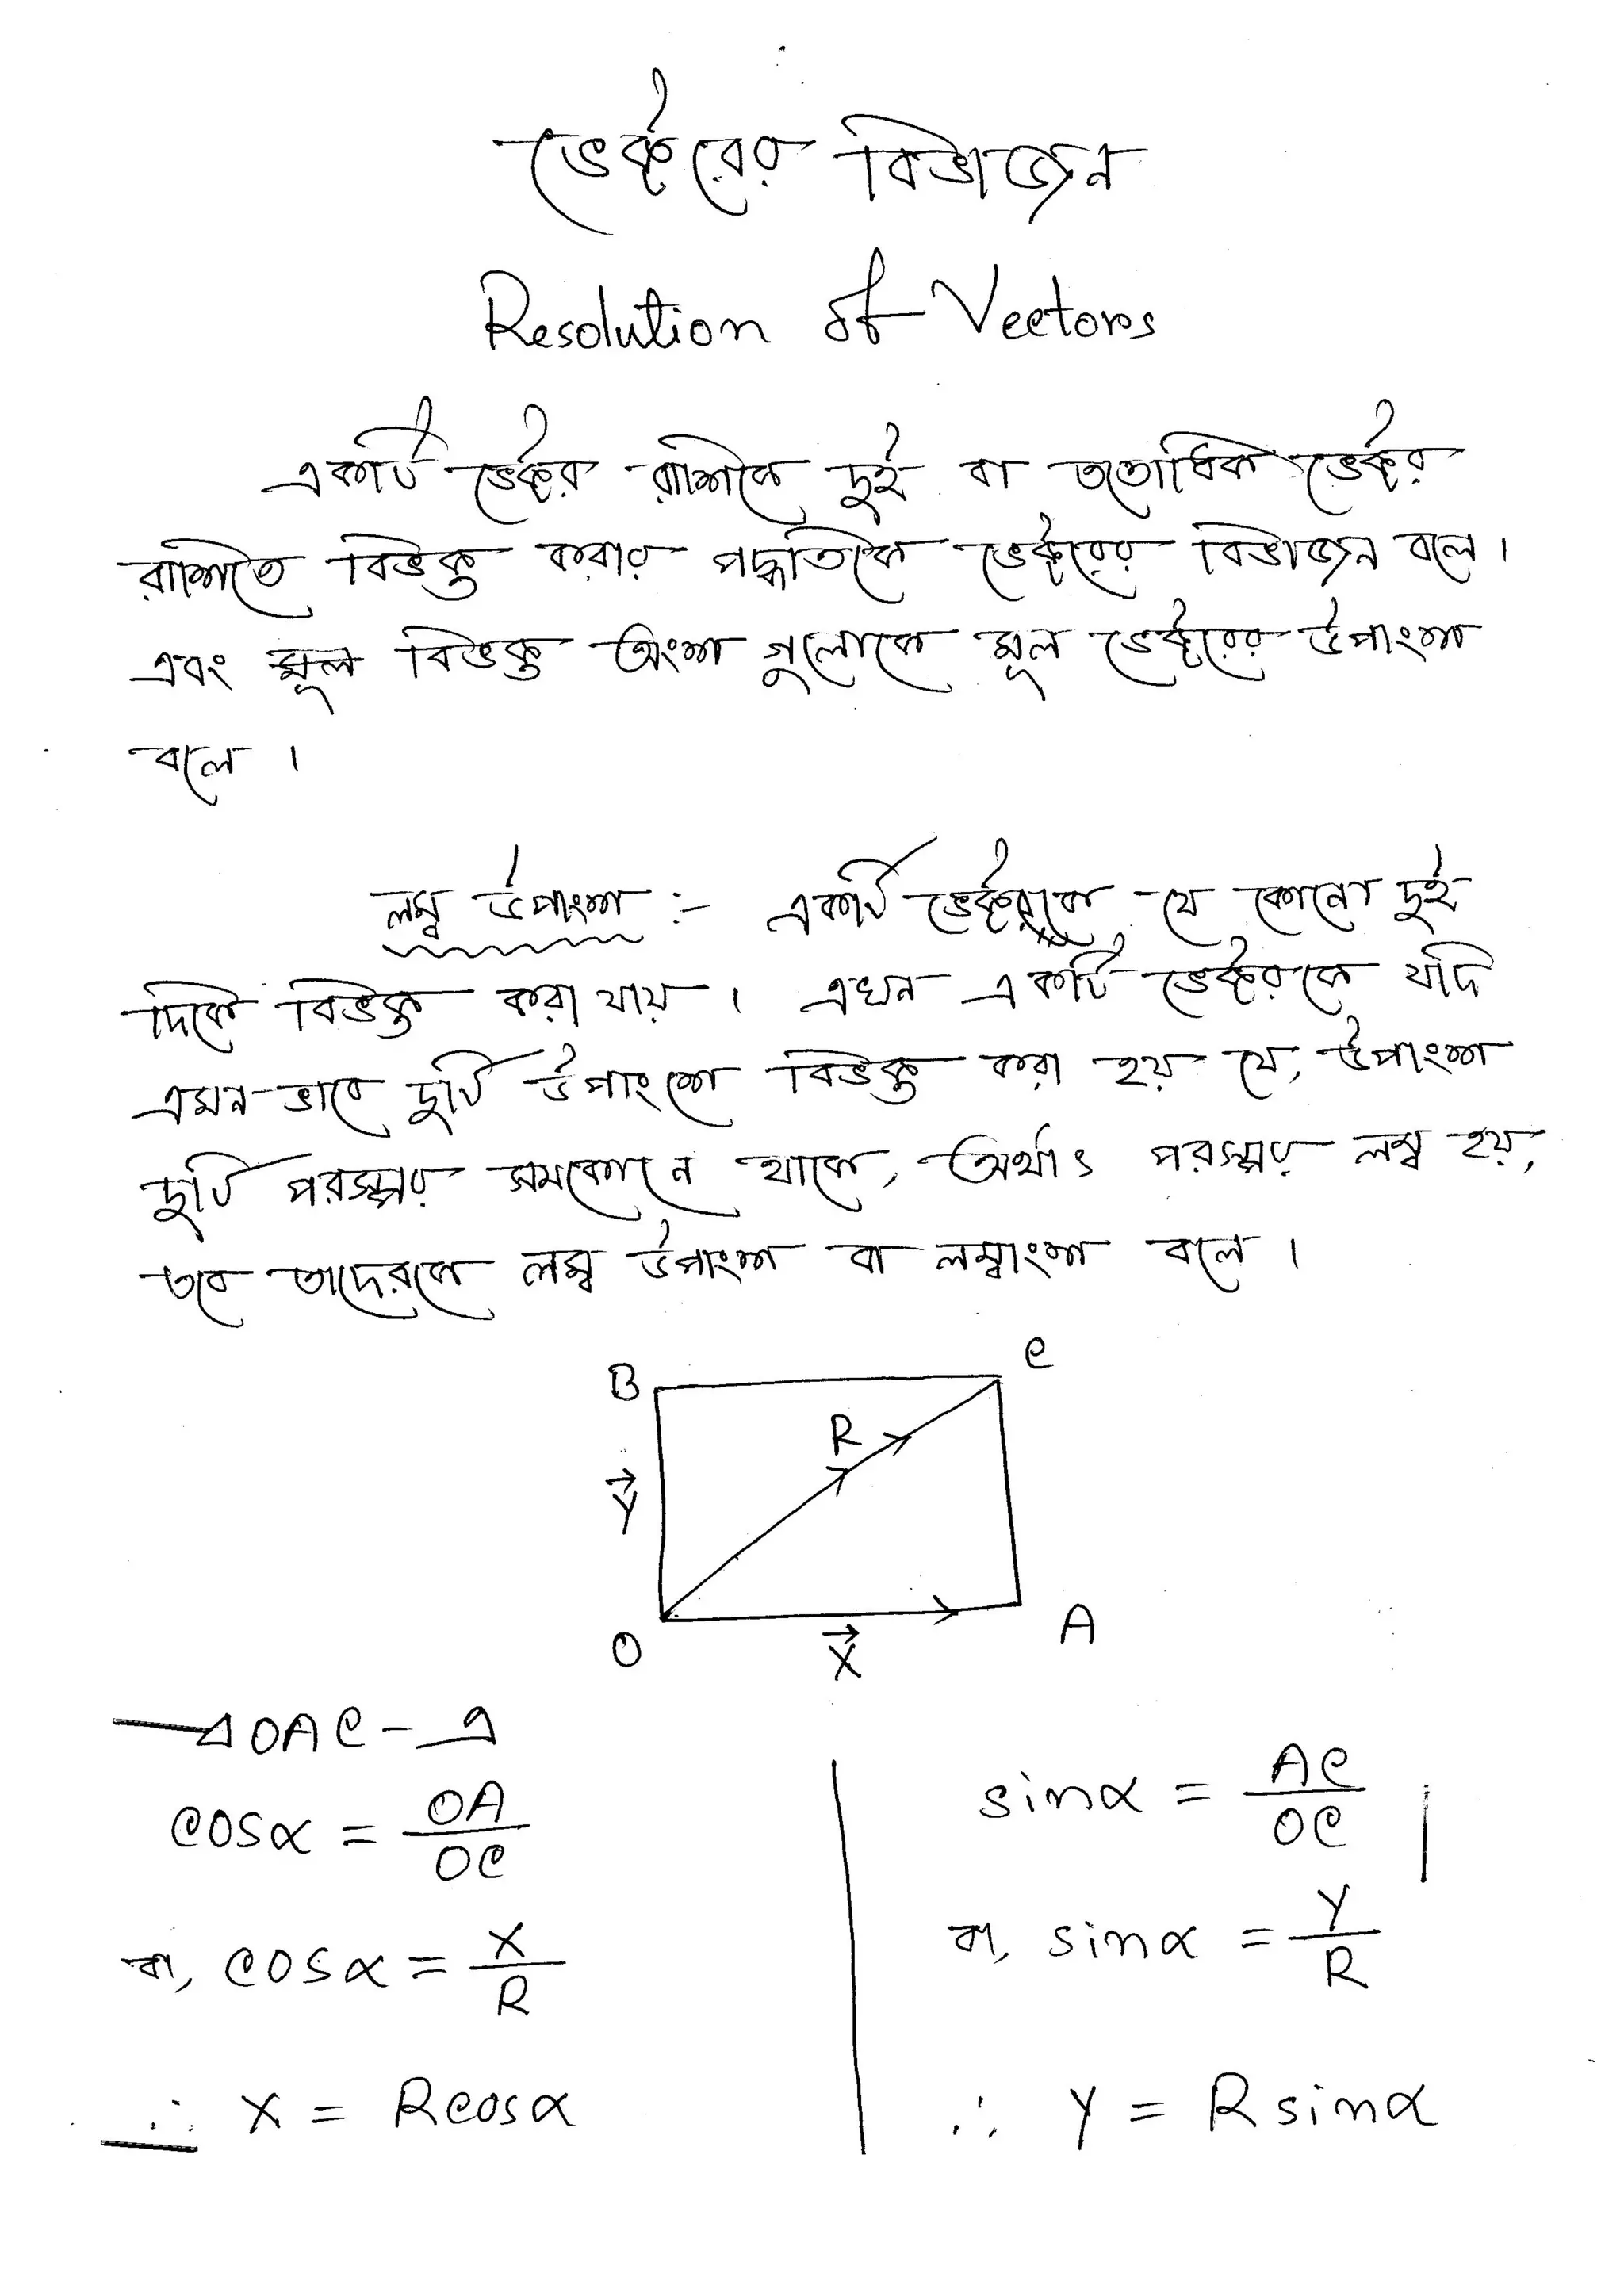 ভেক্টরের বিভাজন
Resolution of Vectors
একটি ভেক্টর রাশিকে দুই বা ততোধিক ভেক্টর
রাশিতে বিভক্ত করার পদ্ধতিকে ভেক্টরের বিভাজন বলে।
এবং মূল বিভক্ত অংশ গুলোকে মূল ভেক্টরের উপাংশ
বলে ।
লম্ব উপাংশ :- একটি ভেক্টরকে যে কোনো দুই
দিকে বিভক্ত করা যায় । এখন একটি ভেক্টরকে যদি
এমন ভাবে দুটি উপাংশে বিভক্ত করা হয় যে, উপাংশ
দুটি পরস্পর সমকোনে থাকে, অর্থাৎ পরস্পর লম্ব হয়,
তবে তাদেরকে লম্ব উপাংশ বা লম্বাংশ বলে ।
B C
R
Y
O X A
△OAC - এ
cosα = OA/OC
বা, cosα = X/R
∴ X = Rcosα
sinα = AC/OC
বা, sinα = Y/R
∴ Y = Rsinα